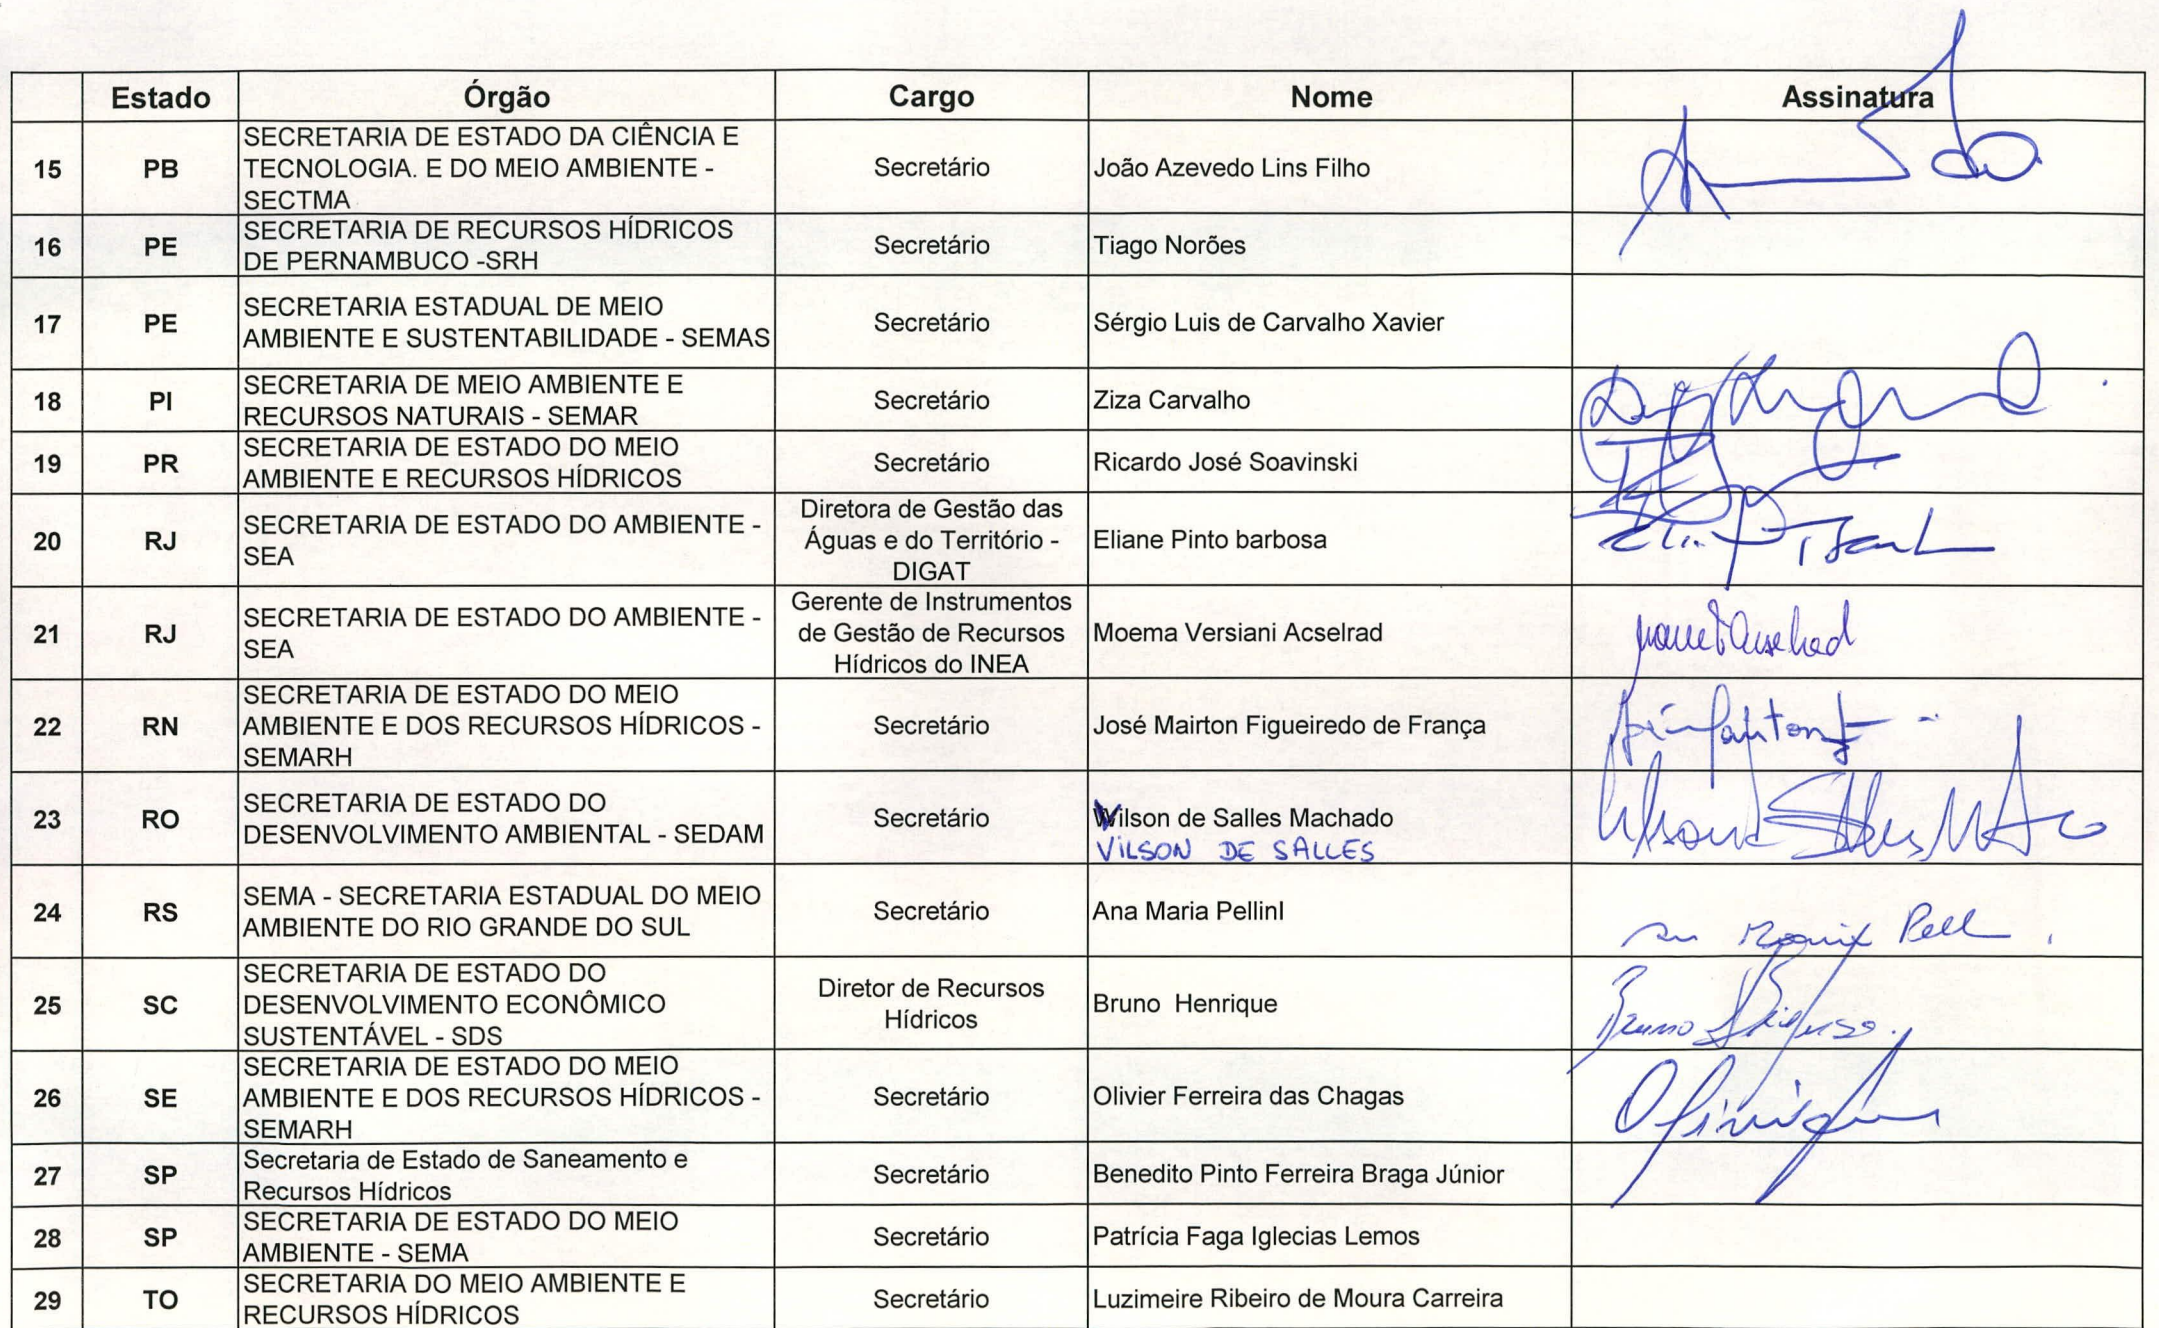 Estado Órgão Cargo Nome Assinatura
15 PB SECRETARIA DE ESTADO DA CIÊNCIA E
TECNOLOGIA. E DO MEIO AMBIENTE -
SECTMA Secretário João Azevedo Lins Filho
16 PE SECRETARIA DE RECURSOS HÍDRICOS
DE PERNAMBUCO -SRH Secretário Tiago Norões
17 PE SECRETARIA ESTADUAL DE MEIO
AMBIENTE E SUSTENTABILIDADE - SEMAS Secretário Sérgio Luis de Carvalho Xavier
18 PI SECRETARIA DE MEIO AMBIENTE E
RECURSOS NATURAIS - SEMAR Secretário Ziza Carvalho
19 PR SECRETARIA DE ESTADO DO MEIO
AMBIENTE E RECURSOS HÍDRICOS Secretário Ricardo José Soavinski
20 RJ SECRETARIA DE ESTADO DO AMBIENTE -
SEA
Diretora de Gestão das
Águas e do Território -
DIGAT
Eliane Pinto barbosa
21 RJ SECRETARIA DE ESTADO DO AMBIENTE -
SEA
Gerente de Instrumentos
de Gestão de Recursos
Hídricos do INEA
Moema Versiani Acselrad
22 RN SECRETARIA DE ESTADO DO MEIO
AMBIENTE E DOS RECURSOS HÍDRICOS -
SEMARH Secretário José Mairton Figueiredo de França
23 RO SECRETARIA DE ESTADO DO
DESENVOLVIMENTO AMBIENTAL - SEDAM Secretário Vilson de Salles Machado
VILSON DE SALLES
24 RS SEMA - SECRETARIA ESTADUAL DO MEIO
AMBIENTE DO RIO GRANDE DO SUL Secretário Ana Maria PellinI
25 SC SECRETARIA DE ESTADO DO
DESENVOLVIMENTO ECONÔMICO
SUSTENTÁVEL - SDS
Diretor de Recursos
Hídricos
Bruno Henrique
Bruno
26 SE SECRETARIA DE ESTADO DO MEIO
AMBIENTE E DOS RECURSOS HÍDRICOS -
SEMARH Secretário Olivier Ferreira das Chagas
27 SP Secretaria de Estado de Saneamento e
Recursos Hídricos Secretário Benedito Pinto Ferreira Braga Júnior
28 SP SECRETARIA DE ESTADO DO MEIO
AMBIENTE - SEMA Secretário Patrícia Faga Iglecias Lemos
29 TO SECRETARIA DO MEIO AMBIENTE E
RECURSOS HÍDRICOS Secretário Luzimeire Ribeiro de Moura Carreira